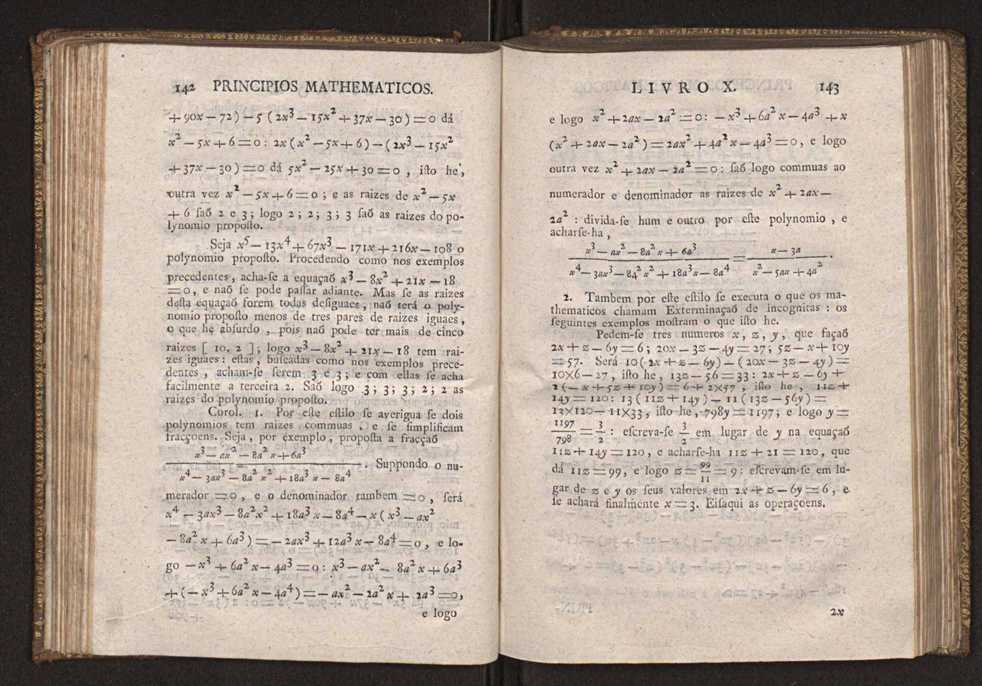 142 PRINCIPIOS MATHEMATICOS.
+ 90x — 72) — 5 (2x³ — 15x² + 37x — 30) = 0 dá
x² — 5x + 6 = 0 : 2x (x² — 5x + 6) — (2x³ — 15x²
+ 37x — 30) = 0 dá 5x² — 25x + 30 = 0 , iſto he,
outra vez x² — 5x + 6 = 0 ; e as raizes de x² — 5x
+ 6 ſaõ 2 e 3 ; logo 2 ; 2 ; 3 ; 3 ſaõ as raizes do po-
lynomio propoſto.
Seja x⁵ — 13x⁴ + 67x³ — 171x + 216x — 108 o
polynomio propoſto. Procedendo como nos exemplos
precedentes , acha-ſe a equaçaõ x³ — 8x² + 21x — 18
= 0 , e naõ ſe pode paſſar adiante. Mas ſe as raizes
deſta equaçaõ forem todas deſiguaes , naõ terá o poly-
nomio propoſto menos de tres pares de raizes iguaes ,
o que he abſurdo , pois naõ pode ter mais de cinco
raizes [ 10. 2 ] ; logo x³ — 8x² + 21x — 18 tem rai-
zes iguaes : eſtas , buſcadas como nos exemplos prece-
dentes , acham-ſe ſerem 3 e 3 ; e com ellas ſe acha
facilmente a terceira 2. Saõ logo 3 ; 3 ; 3 ; 2 ; 2 as
raizes do polynomio propoſto.
Corol. 1. Por eſte eſtilo ſe averigua ſe dois
polynomios tem raizes commuas , e ſe ſimplificam
fracçoens. Seja , por exemplo , propoſta a fracçaõ
x³ — ax² — 8a² x + 6a³
x⁴ — 3ax³ — 8a² x² + 18a³ x — 8a⁴ . Suppondo o nu-
merador = 0 , e o denominador tambem = 0 , ſerá
x⁴ — 3ax³ — 8a²x² + 18a³ x — 8a⁴ — x ( x³ — ax²
— 8a² x + 6a³ ) = — 2ax³ + 12a³ x — 8a⁴ = 0 , e lo-
go — x³ + 6a² x — 4a³ = 0 : x³ — ax² — 8a² x + 6a³
+ (— x³ + 6a² x — 4a⁴ ) = — ax² — 2a² x + 2a³ = 0 ,
e logo
LIVRO X. 143
e logo x² + 2ax — 2a² = 0 : — x³ + 6a² x — 4a³ + x
(x² + 2ax — 2a² ) = 2ax² + 4a² x — 4a³ = 0 , e logo
outra vez x² + 2ax — 2a² = 0 : ſaõ logo commuas ao
numerador e denominador as raizes de x² + 2ax —
2a² : divida-ſe hum e outro por eſte polynomio , e
acharſe-ha ,
x³ — ax² — 8a² x + 6a³ = x — 3a
x⁴ — 3ax³ — 84² x² + 18a³ x — 8a⁴ x² — 5ax + 4a² .
2. Tambem por eſte eſtilo ſe executa o que os ma-
thematicos chamam Exterminaçaõ de incognitas : os
ſeguintes exemplos moſtram o que iſto he.
Pedem-ſe tres numeros x , z , y , que façaõ
2x + z — 6y = 6 ; 20x — 3z — 4y = 27 ; 5z — x + 10y
= 57. Será 10 ( 2x + z — 6y ) — ( 20x — 3z — 4y ) =
10X6 — 27 , iſto he , 13z — 56 = 33 : 2x + z — 6y +
2 (— x + 5z + 10y) = 6 + 2X57 , iſto he , 11z +
14y = 120 : 13 ( 11z + 14y ) — 11 ( 13z — 56y ) =
13X120 — 11X33 , iſto he , 798y = 1197 ; e logo y =
1197 = 3 : eſcreva-ſe 3 em lugar de y na equaçaõ
798 2 2
11z + 14y = 120 , e acharſe-ha 11z + 21 = 120 , que
dá 11z = 99 , e logo z = 99 = 9 : eſcrevam-ſe em lu-
11
gar de z e y os ſeus valores em 2x + z — 6y = 6 , e
ſe achará finalmente x = 3. Eiſaqui as operaçoens.
2x